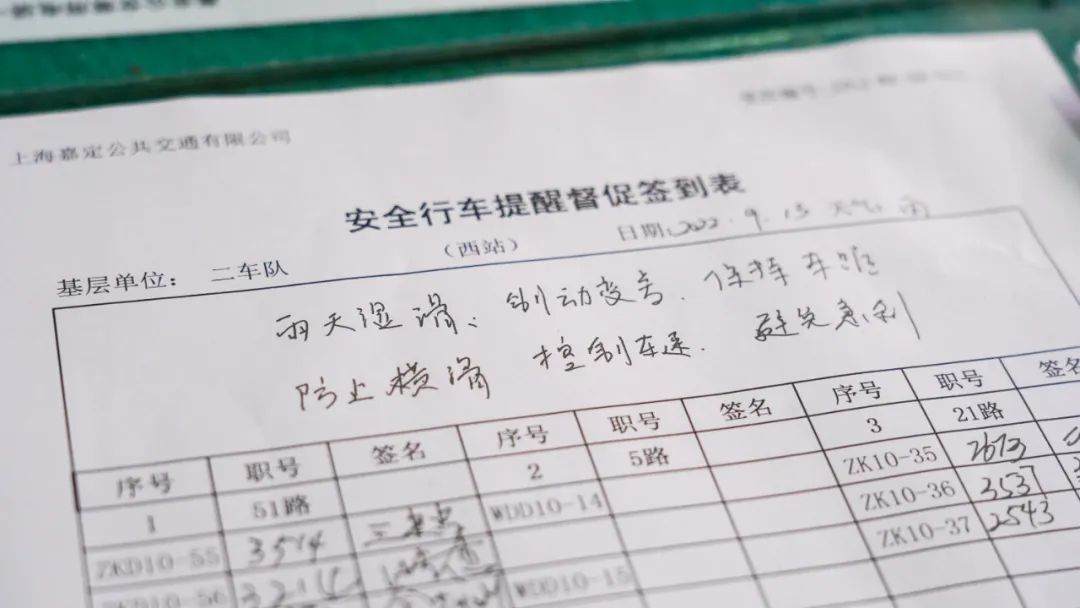 上海嘉定公共交通有限公司
安全行车提醒督促签到表
（西站）
日期:2022.9.15 天气: 雨
基层单位： 二车队
雨天湿滑、制动变差、保持车距
防止横滑 控制车速、避免急刹
序号 职号 签名 序号 职号 签名 序号 职号 签名
1 51路 2 5路 3 21路
ZKD10-55 3514 WDD10-14 ZK10-35 2673
ZKD10-56 WDD10-15 ZK10-36 3537
ZK10-37 2543